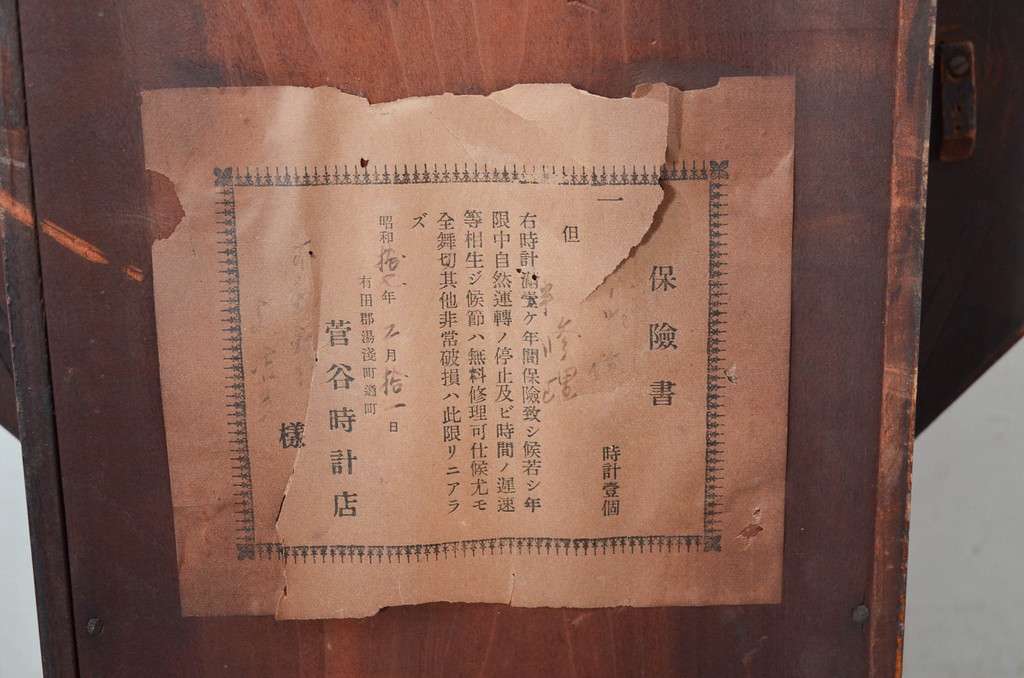 保險書
一
時計壹個
但
修理
右時計滿壹ケ年間保險致シ候若シ年
限中自然運轉ノ停止及ビ時間ノ遲速
等相生ジ候節ハ無料修理可仕候尤モ
全舞切其他非常破損ハ此限リニアラ
ズ
昭和拾七年二月拾一日
有田郡湯淺町道町
菅谷時計店
樣